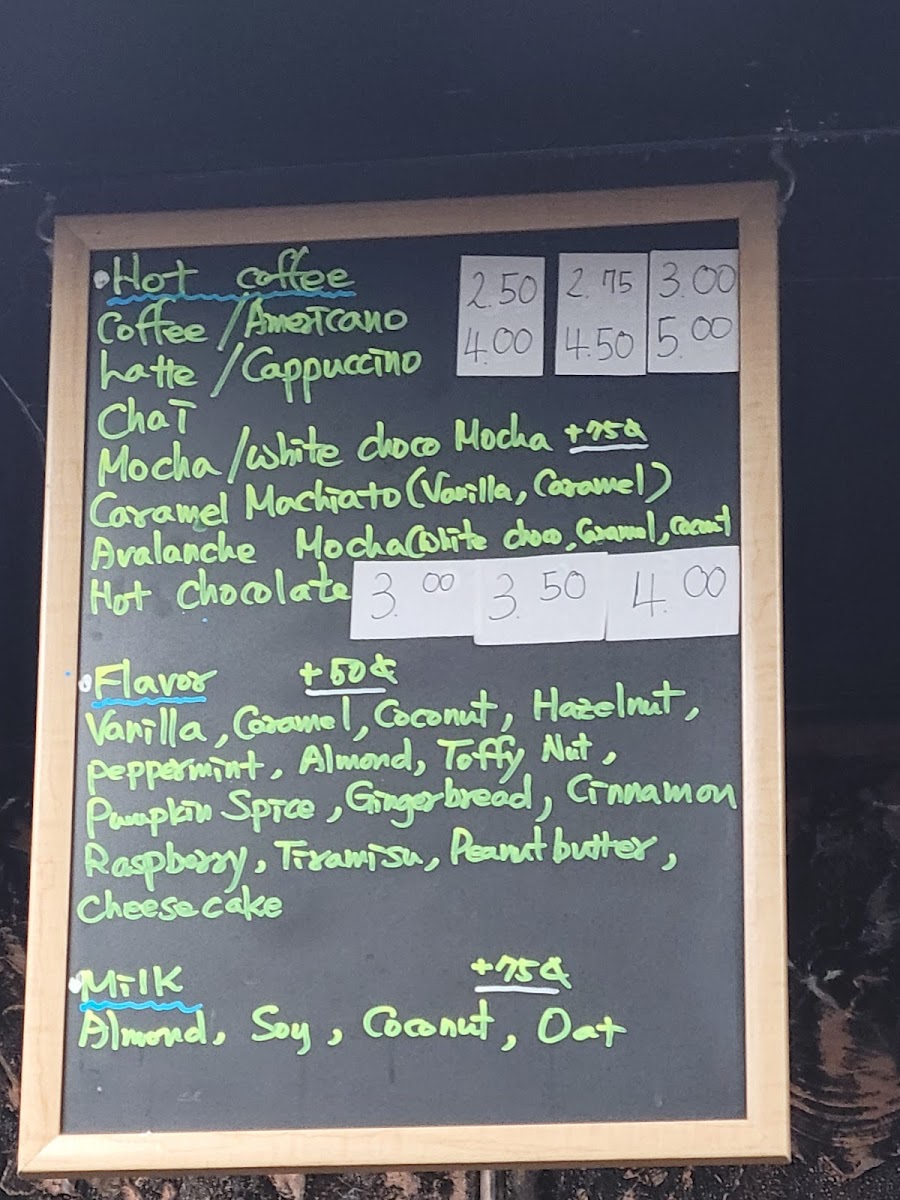 Hot coffee
Coffee / Americano 2.50 2.75 3.00
Latte / Cappuccino 4.00 4.50 5.00
Chai
Mocha / White choco Mocha +75¢
Caramel Machiato (Vanilla, Caramel)
Avalanche Mocha (White choco, Caramel, coconut
Hot chocolate 3.00 3.50 4.00
Flavor +50¢
Vanilla, Caramel, Coconut, Hazelnut,
peppermint, Almond, Toffy Nut,
Pumpkin Spice, Gingerbread, Cinnamon
Raspberry, Tiramisu, Peanut butter,
Cheese cake
Milk +75¢
Almond, Soy, Coconut, Oat